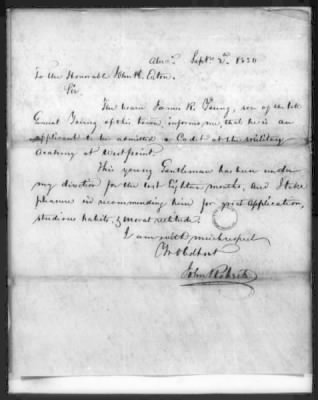 Sept. 2d. 1830
To the Honorable John H. Eaton.
Sir,
The bearer James R. Young, son of the late
Young of this town, informs me, that he is an
applicant to be admitted a Cadet at the Military
Academy at West point.
This young Gentleman has been under
my direction for the last Eighteen months, and I take
pleasure in recommending him for great application,
studious habits, & moral rectitude.
I am with much respect
Yr Obdt
John Roberts